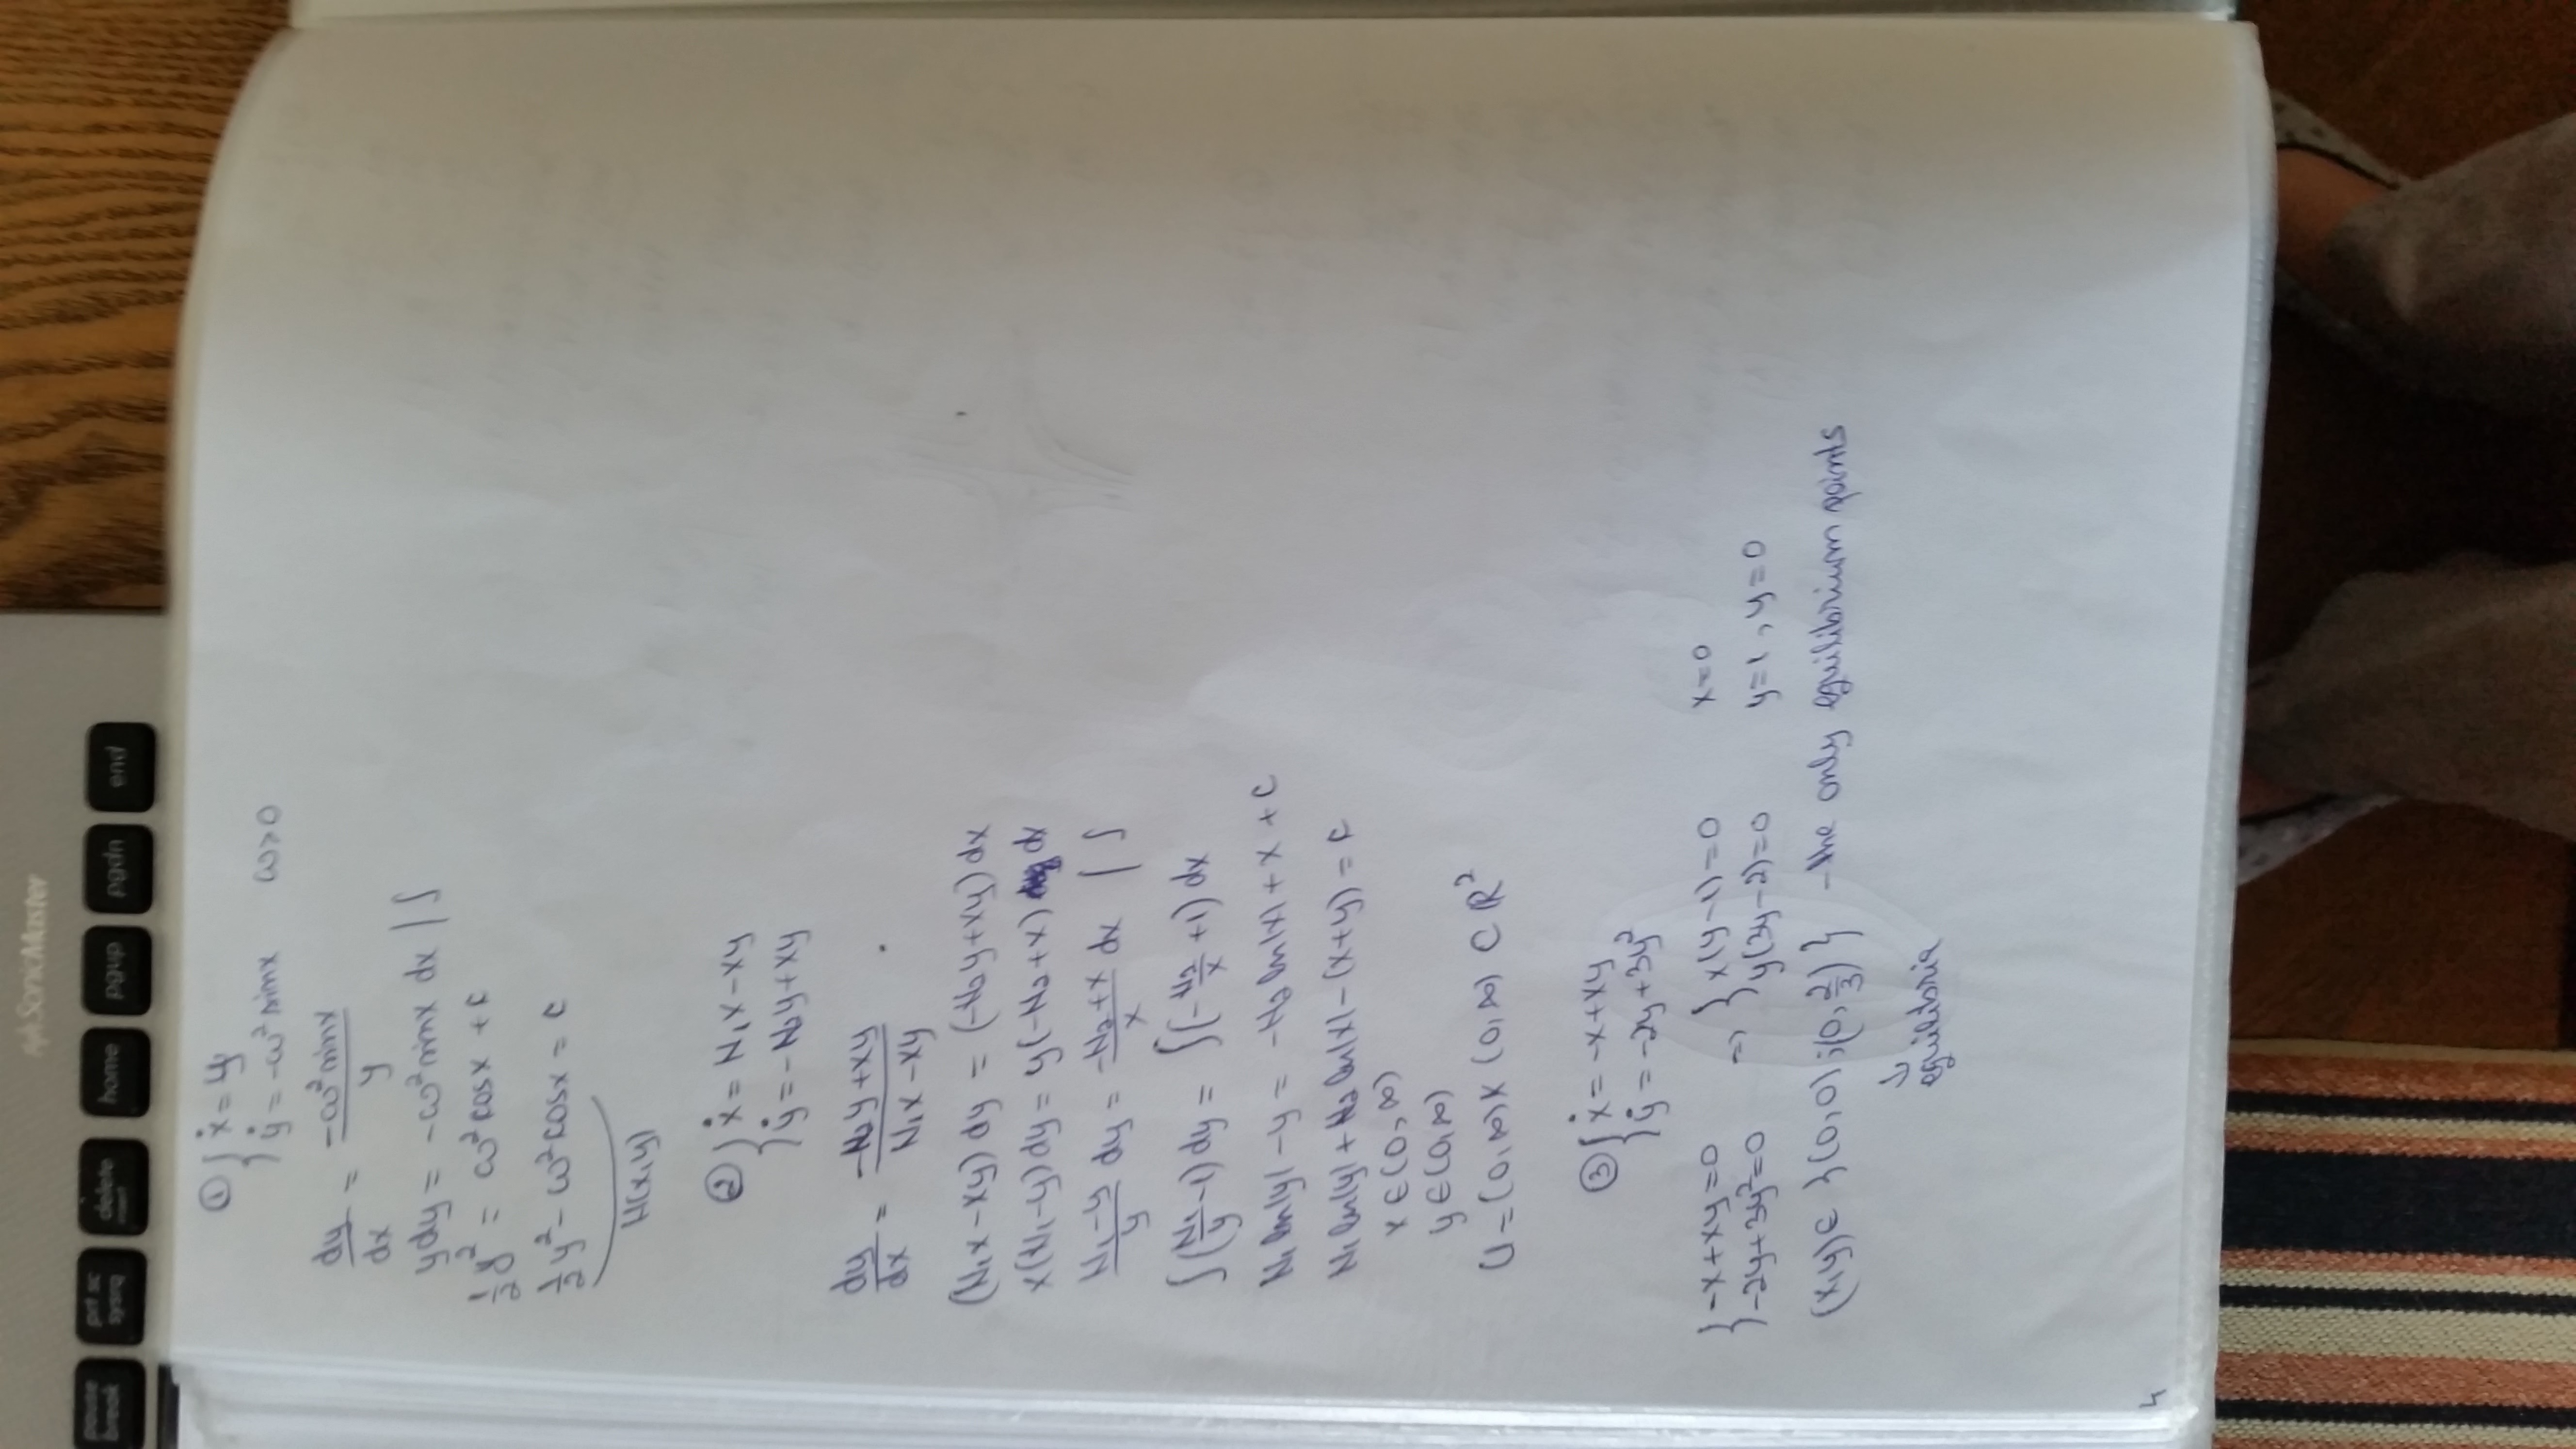 SonicMaster
pause break
prt sc sysrq
delete insert
home
pgup
pgdn
end
① { ẋ = y
ẏ = -ω² sinx ω>0
dy/dx = -ω² sinx / y
ydy = -ω² sinx dx | ∫
1/2 y² = ω² cosx + c
1/2 y² - ω² cosx = c
H(x,y)
② { ẋ = N₁x - xy
ẏ = -N₂y + xy
dy/dx = -N₂y + xy / N₁x - xy
(N₁x - xy) dy = (-N₂y + xy) dx
x(N₁ - y) dy = y(-N₂ + x) dx
N₁ - y / y dy = -N₂ + x / x dx | ∫
∫(N₁/y - 1) dy = ∫(-N₂/x + 1) dx
N₁ ln|y| - y = -N₂ ln|x| + x + c
N₁ ln|y| + N₂ ln|x| - (x+y) = c
x ∈ (0, ∞)
y ∈ (0, ∞)
U = (0, ∞) × (0, ∞) ⊂ ℝ²
③ { ẋ = -x + xy
ẏ = -2y + 3y²
{ -x + xy = 0 => { x(y-1) = 0 x = 0
-2y + 3y² = 0 y(3y-2) = 0 y = 1, y = 0
(x,y) ∈ {(0,0); (0, 2/3)} - the only equilibrium points
↓
equilibria
4